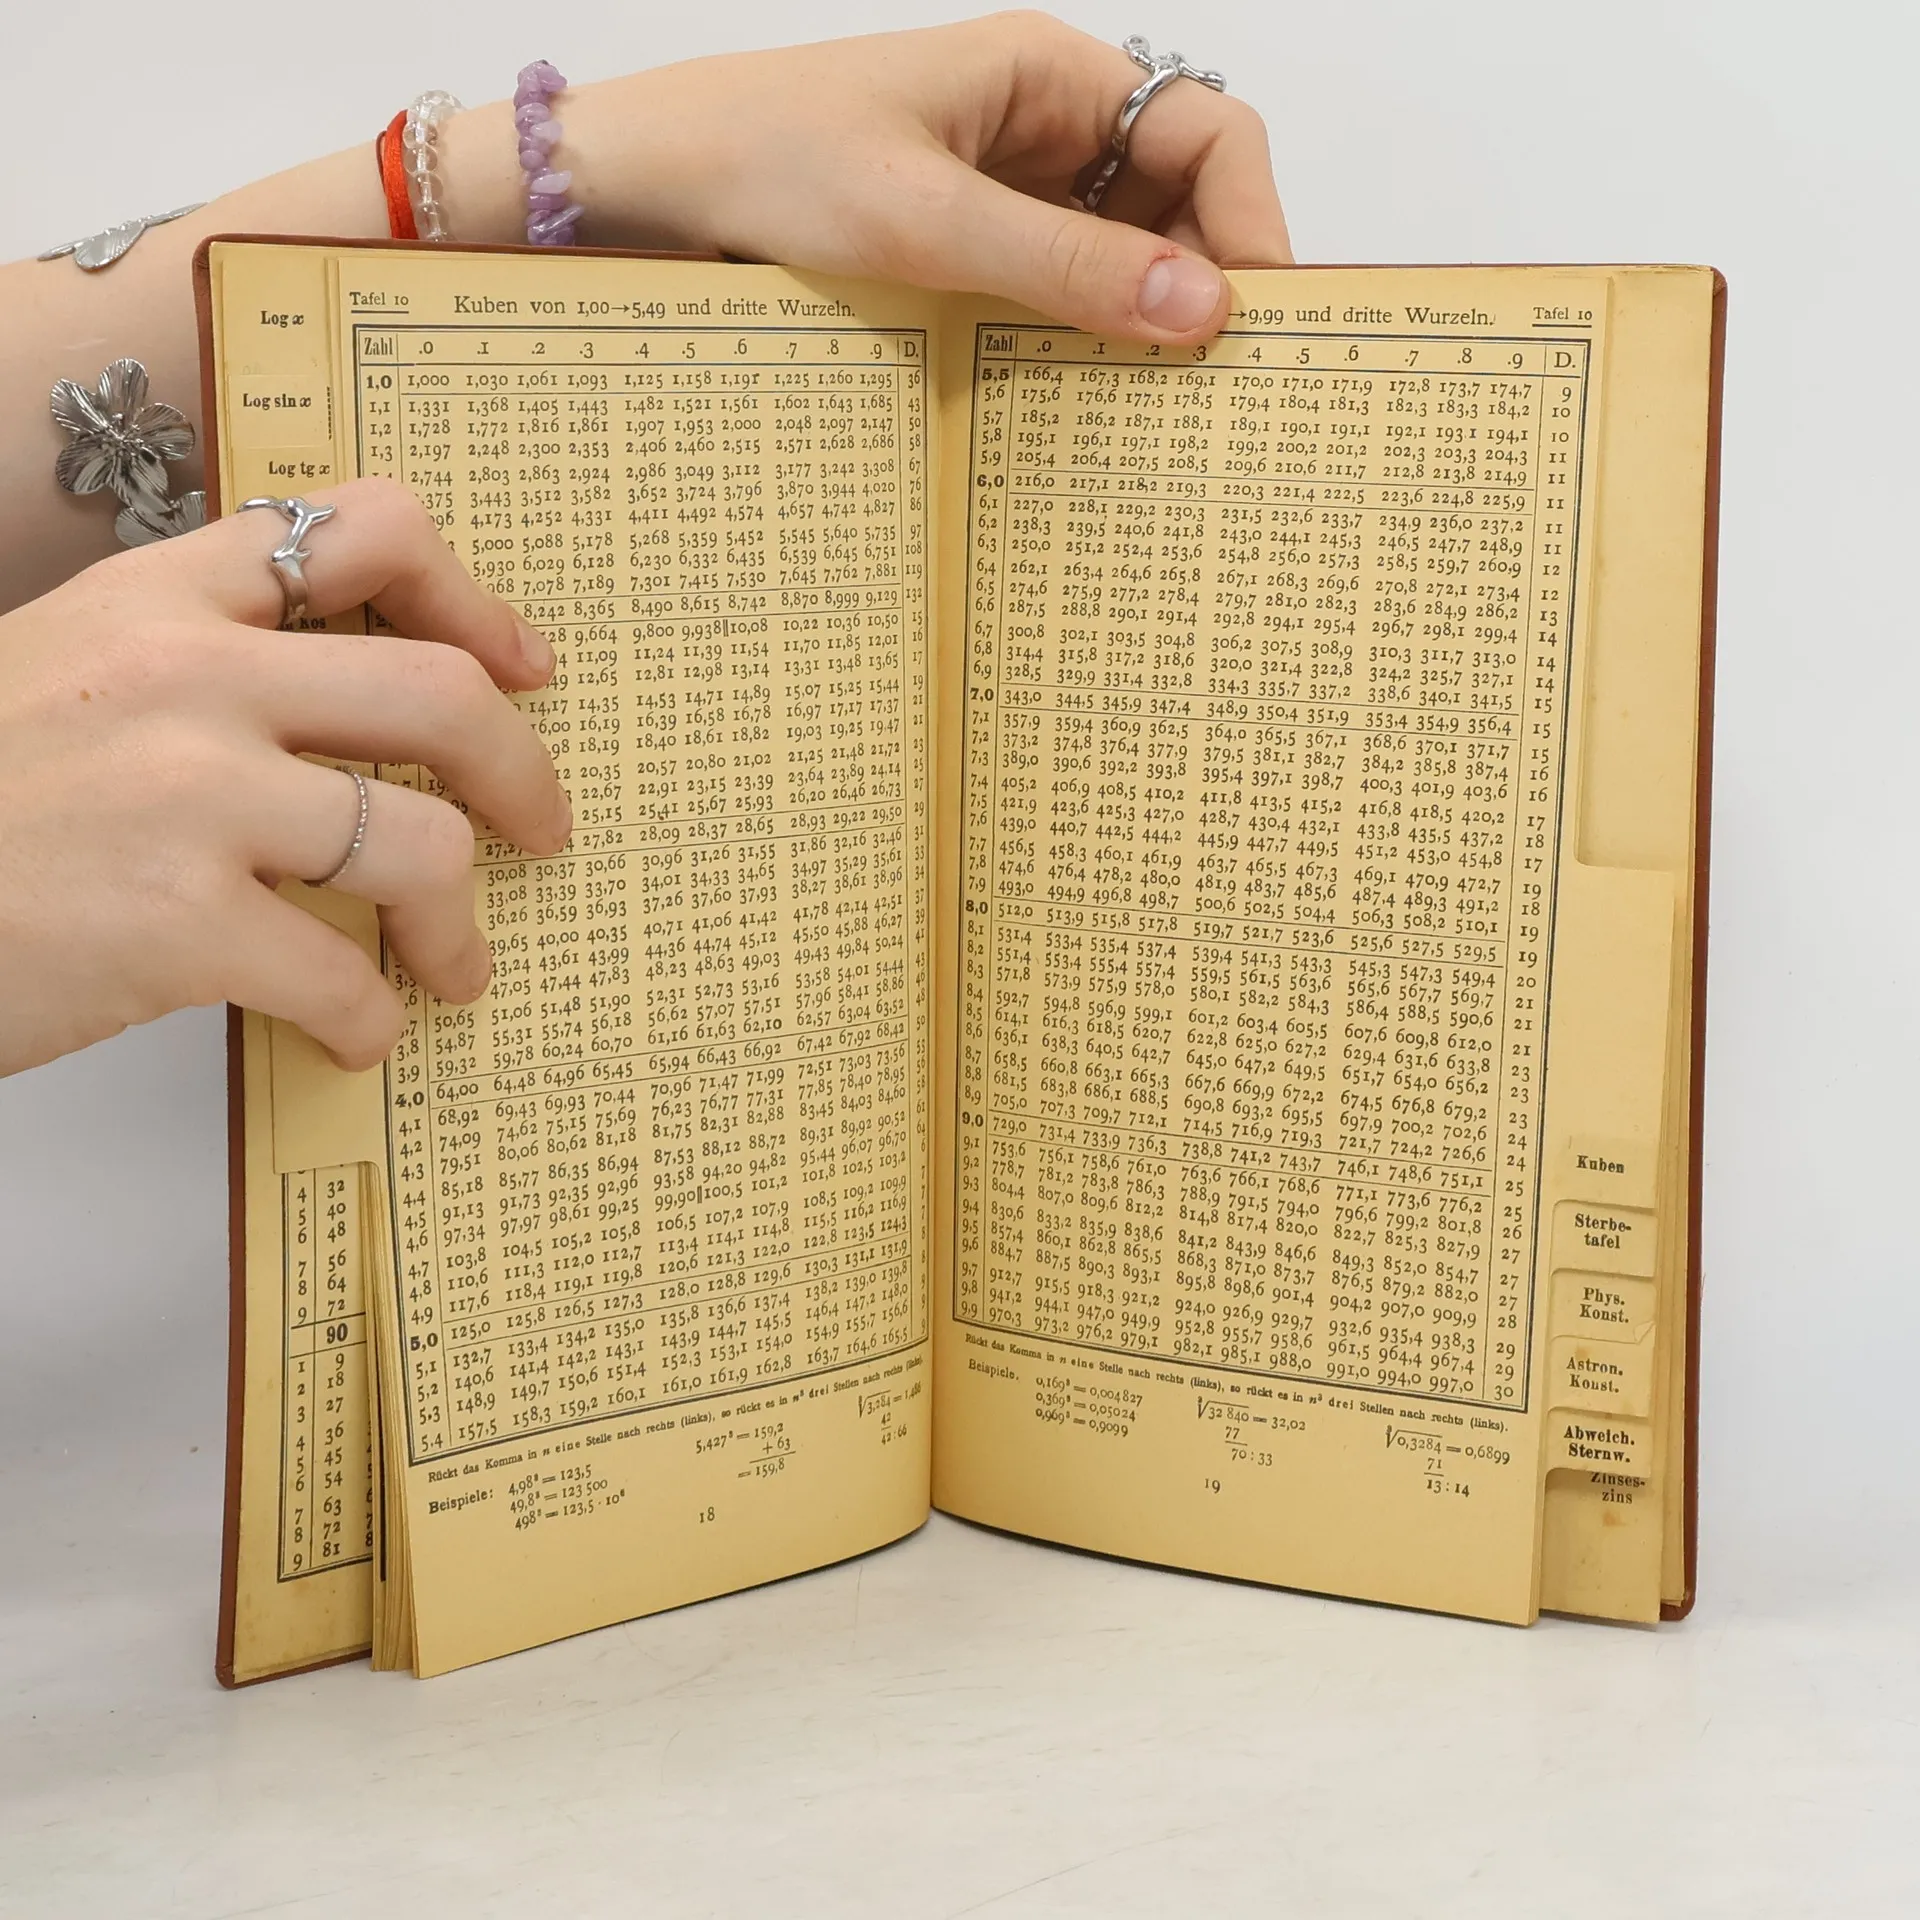 Log x
Log sin x
Log tg x
Tafel 10
Kuben von 1,00→5,49 und dritte Wurzeln.
Zahl .0 .1 .2 .3 .4 .5 .6 .7 .8 .9 D.
1,0 1,000 1,030 1,061 1,093 1,125 1,158 1,191 1,225 1,260 1,295 36
1,1 1,331 1,368 1,405 1,443 1,482 1,521 1,561 1,602 1,643 1,685 43
1,2 1,728 1,772 1,816 1,861 1,907 1,953 2,000 2,048 2,097 2,147 50
1,3 2,197 2,248 2,300 2,353 2,406 2,460 2,515 2,571 2,628 2,686 58
2,744 2,803 2,863 2,924 2,986 3,049 3,112 3,177 3,242 3,308 67
3,443 3,512 3,582 3,652 3,724 3,796 3,870 3,944 4,020 76
4,173 4,252 4,331 4,411 4,492 4,574 4,657 4,742 4,827 86
5,000 5,088 5,178 5,268 5,359 5,452 5,545 5,640 5,735 97
5,930 6,029 6,128 6,230 6,332 6,435 6,539 6,645 6,751 108
7,078 7,189 7,301 7,415 7,530 7,645 7,762 7,881 119
8,242 8,365 8,490 8,615 8,742 8,870 8,999 9,129 132
9,664 9,800 9,938‖10,08 10,22 10,36 10,50 15
11,09 11,24 11,39 11,54 11,70 11,85 12,01 16
12,65 12,81 12,98 13,14 13,31 13,48 13,65 17
14,17 14,35 14,53 14,71 14,89 15,07 15,25 15,44 19
16,00 16,19 16,39 16,58 16,78 16,97 17,17 17,37 21
18,19 18,40 18,61 18,82 19,03 19,25 19,47 21
20,35 20,57 20,80 21,02 21,25 21,48 21,72 23
22,67 22,91 23,15 23,39 23,64 23,89 24,14 25
25,15 25,41 25,67 25,93 26,20 26,46 26,73 27
27,82 28,09 28,37 28,65 28,93 29,22 29,50 29
30,08 30,37 30,66 30,96 31,26 31,55 31,86 32,16 32,46 31
33,08 33,39 33,70 34,01 34,33 34,65 34,97 35,29 35,61 33
36,26 36,59 36,93 37,26 37,60 37,93 38,27 38,61 38,96 34
39,65 40,00 40,35 40,71 41,06 41,42 41,78 42,14 42,51 37
43,24 43,61 43,99 44,36 44,74 45,12 45,50 45,88 46,27 39
47,05 47,44 47,83 48,23 48,63 49,03 49,43 49,84 50,24 41
50,65 51,06 51,48 51,90 52,31 52,73 53,16 53,58 54,01 54,44 43
3,8 54,87 55,31 55,74 56,18 56,62 57,07 57,51 57,96 58,41 58,86 46
3,9 59,32 59,78 60,24 60,70 61,16 61,63 62,10 62,57 63,04 63,52 48
4,0 64,00 64,48 64,96 65,45 65,94 66,43 66,92 67,42 67,92 68,42 50
4,1 68,92 69,43 69,93 70,44 70,96 71,47 71,99 72,51 73,03 73,56 53
4,2 74,09 74,62 75,15 75,69 76,23 76,77 77,31 77,85 78,40 78,95 56
4,3 79,51 80,06 80,62 81,18 81,75 82,31 82,88 83,45 84,03 84,60 58
4,4 85,18 85,77 86,35 86,94 87,53 88,12 88,72 89,31 89,92 90,52 61
4,5 91,13 91,73 92,35 92,96 93,58 94,20 94,82 95,44 96,07 96,70 64
4,6 97,34 97,97 98,61 99,25 99,90‖100,5 101,2 101,8 102,5 103,2 6
4,7 103,8 104,5 105,2 105,8 106,5 107,2 107,9 108,5 109,2 109,9 7
4,8 110,6 111,3 112,0 112,7 113,4 114,1 114,8 115,5 116,2 116,9 7
4,9 117,6 118,4 119,1 119,8 120,6 121,3 122,0 122,8 123,5 124,3 7
5,0 125,0 125,8 126,5 127,3 128,0 128,8 129,6 130,3 131,1 131,9 8
5,1 132,7 133,4 134,2 135,0 135,8 136,6 137,4 138,2 139,0 139,8 8
5,2 140,6 141,4 142,2 143,1 143,9 144,7 145,5 146,4 147,2 148,0 9
5,3 148,9 149,7 150,6 151,4 152,3 153,1 154,0 154,9 155,7 156,6 9
5,4 157,5 158,3 159,2 160,1 161,0 161,9 162,8 163,7 164,6 165,5 9
Rückt das Komma in n eine Stelle nach rechts (links), so rückt es in n³ drei Stellen nach rechts (links).
Beispiele: 4,98³ = 123,5
49,8³ = 123 500
498³ = 123,5 · 10⁶
5,427³ = 159,2
+ 63
= 159,8
∛3,284 = 1,486
42
42 : 66
18
4 32
5 40
6 48
7 56
8 64
9 72
90
1 9
2 18
3 27
4 36
5 45
6 54
7 63
8 72
9 81
→9,99 und dritte Wurzeln.
Tafel 10
Zahl .0 .1 .2 .3 .4 .5 .6 .7 .8 .9 D.
5,5 166,4 167,3 168,2 169,1 170,0 171,0 171,9 172,8 173,7 174,7 9
5,6 175,6 176,6 177,5 178,5 179,4 180,4 181,3 182,3 183,3 184,2 10
5,7 185,2 186,2 187,1 188,1 189,1 190,1 191,1 192,1 193,1 194,1 10
5,8 195,1 196,1 197,1 198,2 199,2 200,2 201,2 202,3 203,3 204,3 11
5,9 205,4 206,4 207,5 208,5 209,6 210,6 211,7 212,8 213,8 214,9 11
6,0 216,0 217,1 218,2 219,3 220,3 221,4 222,5 223,6 224,8 225,9 11
6,1 227,0 228,1 229,2 230,3 231,5 232,6 233,7 234,9 236,0 237,2 11
6,2 238,3 239,5 240,6 241,8 243,0 244,1 245,3 246,5 247,7 248,9 11
6,3 250,0 251,2 252,4 253,6 254,8 256,0 257,3 258,5 259,7 260,9 12
6,4 262,1 263,4 264,6 265,8 267,1 268,3 269,6 270,8 272,1 273,4 12
6,5 274,6 275,9 277,2 278,4 279,7 281,0 282,3 283,6 284,9 286,2 13
6,6 287,5 288,8 290,1 291,4 292,8 294,1 295,4 296,7 298,1 299,4 14
6,7 300,8 302,1 303,5 304,8 306,2 307,5 308,9 310,3 311,7 313,0 14
6,8 314,4 315,8 317,2 318,6 320,0 321,4 322,8 324,2 325,7 327,1 14
6,9 328,5 329,9 331,4 332,8 334,3 335,7 337,2 338,6 340,1 341,5 15
7,0 343,0 344,5 345,9 347,4 348,9 350,4 351,9 353,4 354,9 356,4 15
7,1 357,9 359,4 360,9 362,5 364,0 365,5 367,1 368,6 370,1 371,7 15
7,2 373,2 374,8 376,4 377,9 379,5 381,1 382,7 384,2 385,8 387,4 16
7,3 389,0 390,6 392,2 393,8 395,4 397,1 398,7 400,3 401,9 403,6 16
7,4 405,2 406,9 408,5 410,2 411,8 413,5 415,2 416,8 418,5 420,2 17
7,5 421,9 423,6 425,3 427,0 428,7 430,4 432,1 433,8 435,5 437,2 18
7,6 439,0 440,7 442,5 444,2 445,9 447,7 449,5 451,2 453,0 454,8 17
7,7 456,5 458,3 460,1 461,9 463,7 465,5 467,3 469,1 470,9 472,7 19
7,8 474,6 476,4 478,2 480,0 481,9 483,7 485,6 487,4 489,3 491,2 18
7,9 493,0 494,9 496,8 498,7 500,6 502,5 504,4 506,3 508,2 510,1 19
8,0 512,0 513,9 515,8 517,8 519,7 521,7 523,6 525,6 527,5 529,5 19
8,1 531,4 533,4 535,4 537,4 539,4 541,3 543,3 545,3 547,3 549,4 20
8,2 551,4 553,4 555,4 557,4 559,5 561,5 563,6 565,6 567,7 569,7 21
8,3 571,8 573,9 575,9 578,0 580,1 582,2 584,3 586,4 588,5 590,6 21
8,4 592,7 594,8 596,9 599,1 601,2 603,4 605,5 607,6 609,8 612,0 21
8,5 614,1 616,3 618,5 620,7 622,8 625,0 627,2 629,4 631,6 633,8 23
8,6 636,1 638,3 640,5 642,7 645,0 647,2 649,5 651,7 654,0 656,2 23
8,7 658,5 660,8 663,1 665,3 667,6 669,9 672,2 674,5 676,8 679,2 23
8,8 681,5 683,8 686,1 688,5 690,8 693,2 695,5 697,9 700,2 702,6 24
8,9 705,0 707,3 709,7 712,1 714,5 716,9 719,3 721,7 724,2 726,6 24
9,0 729,0 731,4 733,9 736,3 738,8 741,2 743,7 746,1 748,6 751,1 25
9,1 753,6 756,1 758,6 761,0 763,6 766,1 768,6 771,1 773,6 776,2 25
9,2 778,7 781,2 783,8 786,3 788,9 791,5 794,0 796,6 799,2 801,8 26
9,3 804,4 807,0 809,6 812,2 814,8 817,4 820,0 822,7 825,3 827,9 27
9,4 830,6 833,2 835,9 838,6 841,2 843,9 846,6 849,3 852,0 854,7 27
9,5 857,4 860,1 862,8 865,5 868,3 871,0 873,7 876,5 879,2 882,0 27
9,6 884,7 887,5 890,3 893,1 895,8 898,6 901,4 904,2 907,0 909,9 28
9,7 912,7 915,5 918,3 921,2 924,0 926,9 929,7 932,6 935,4 938,3 29
9,8 941,2 944,1 947,0 949,9 952,8 955,7 958,6 961,5 964,4 967,4 29
9,9 970,3 973,2 976,2 979,1 982,1 985,1 988,0 991,0 994,0 997,0 30
Rückt das Komma in n eine Stelle nach rechts (links), so rückt es in n³ drei Stellen nach rechts (links).
Beispiele.
0,169³ = 0,004827
0,369³ = 0,05024
0,969³ = 0,9099
∛32 840 = 32,02
77
70 : 33
∛0,3284 = 0,6899
71
13 : 14
19
Kuben
Sterbe-
tafel
Phys.
Konst.
Astron.
Konst.
Abweich.
Sternw.
Zinses-
zins